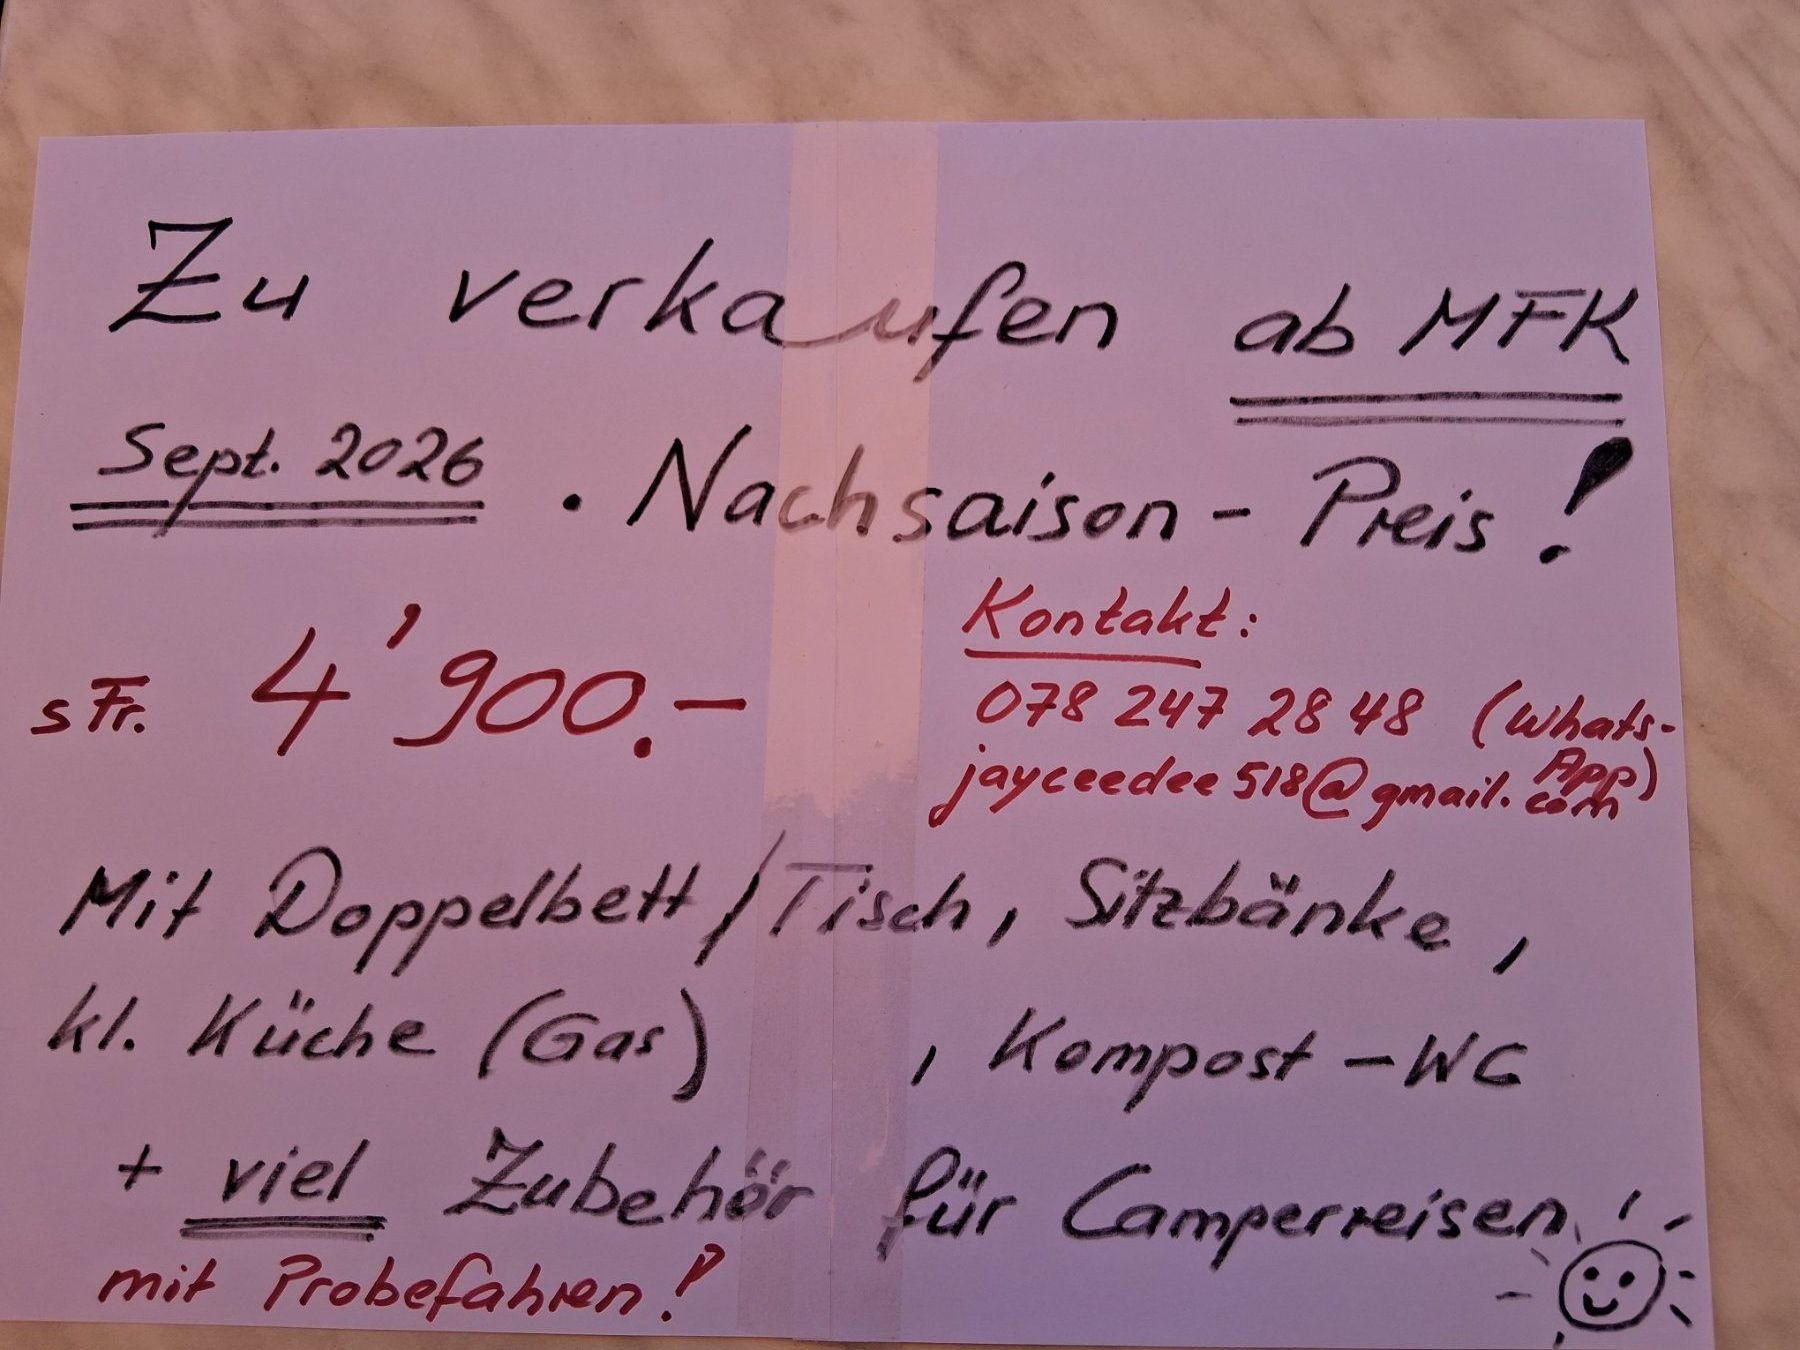 Zu verkaufen ab MFK
Sept. 2026 . Nachsaison - Preis !
sFr. 4'900.-
Kontakt:
078 247 28 48 (Whats-
App)
jayceedee518@gmail.com
Mit Doppelbett / Tisch, Sitzbänke,
kl. Küche (Gas) , Kompost - WC
+ viel Zubehör für Camperreisen
mit Probefahren!